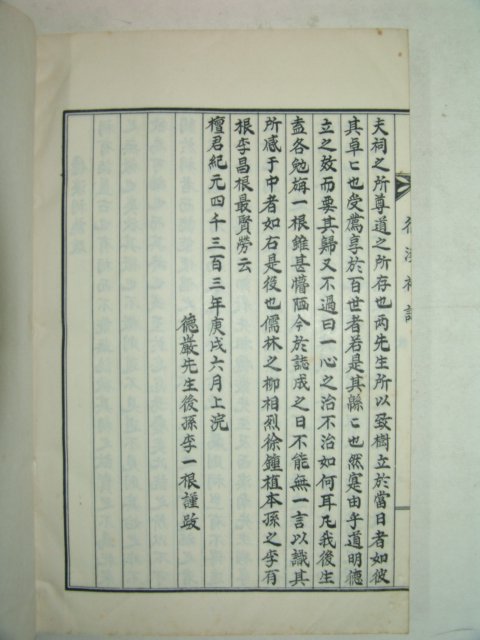 夫祠之所尊道之所存也两先生所以致樹立於當日者如彼
其卓〻也受薦享於百世者若是其縣〻也然寔由乎道明德
立之效而要其歸又不過曰一心之治不治如何耳凡我後生
盍各勉旃一根雖甚懵陋今於誌成之日不能無一言以識其
所感于中者如右是役也儒林之柳相烈徐鐘植本孫之李有
根李昌根最賢勞云
檀君紀元四千三百三年庚戌六月上浣
德巖先生後孫李一根謹跋